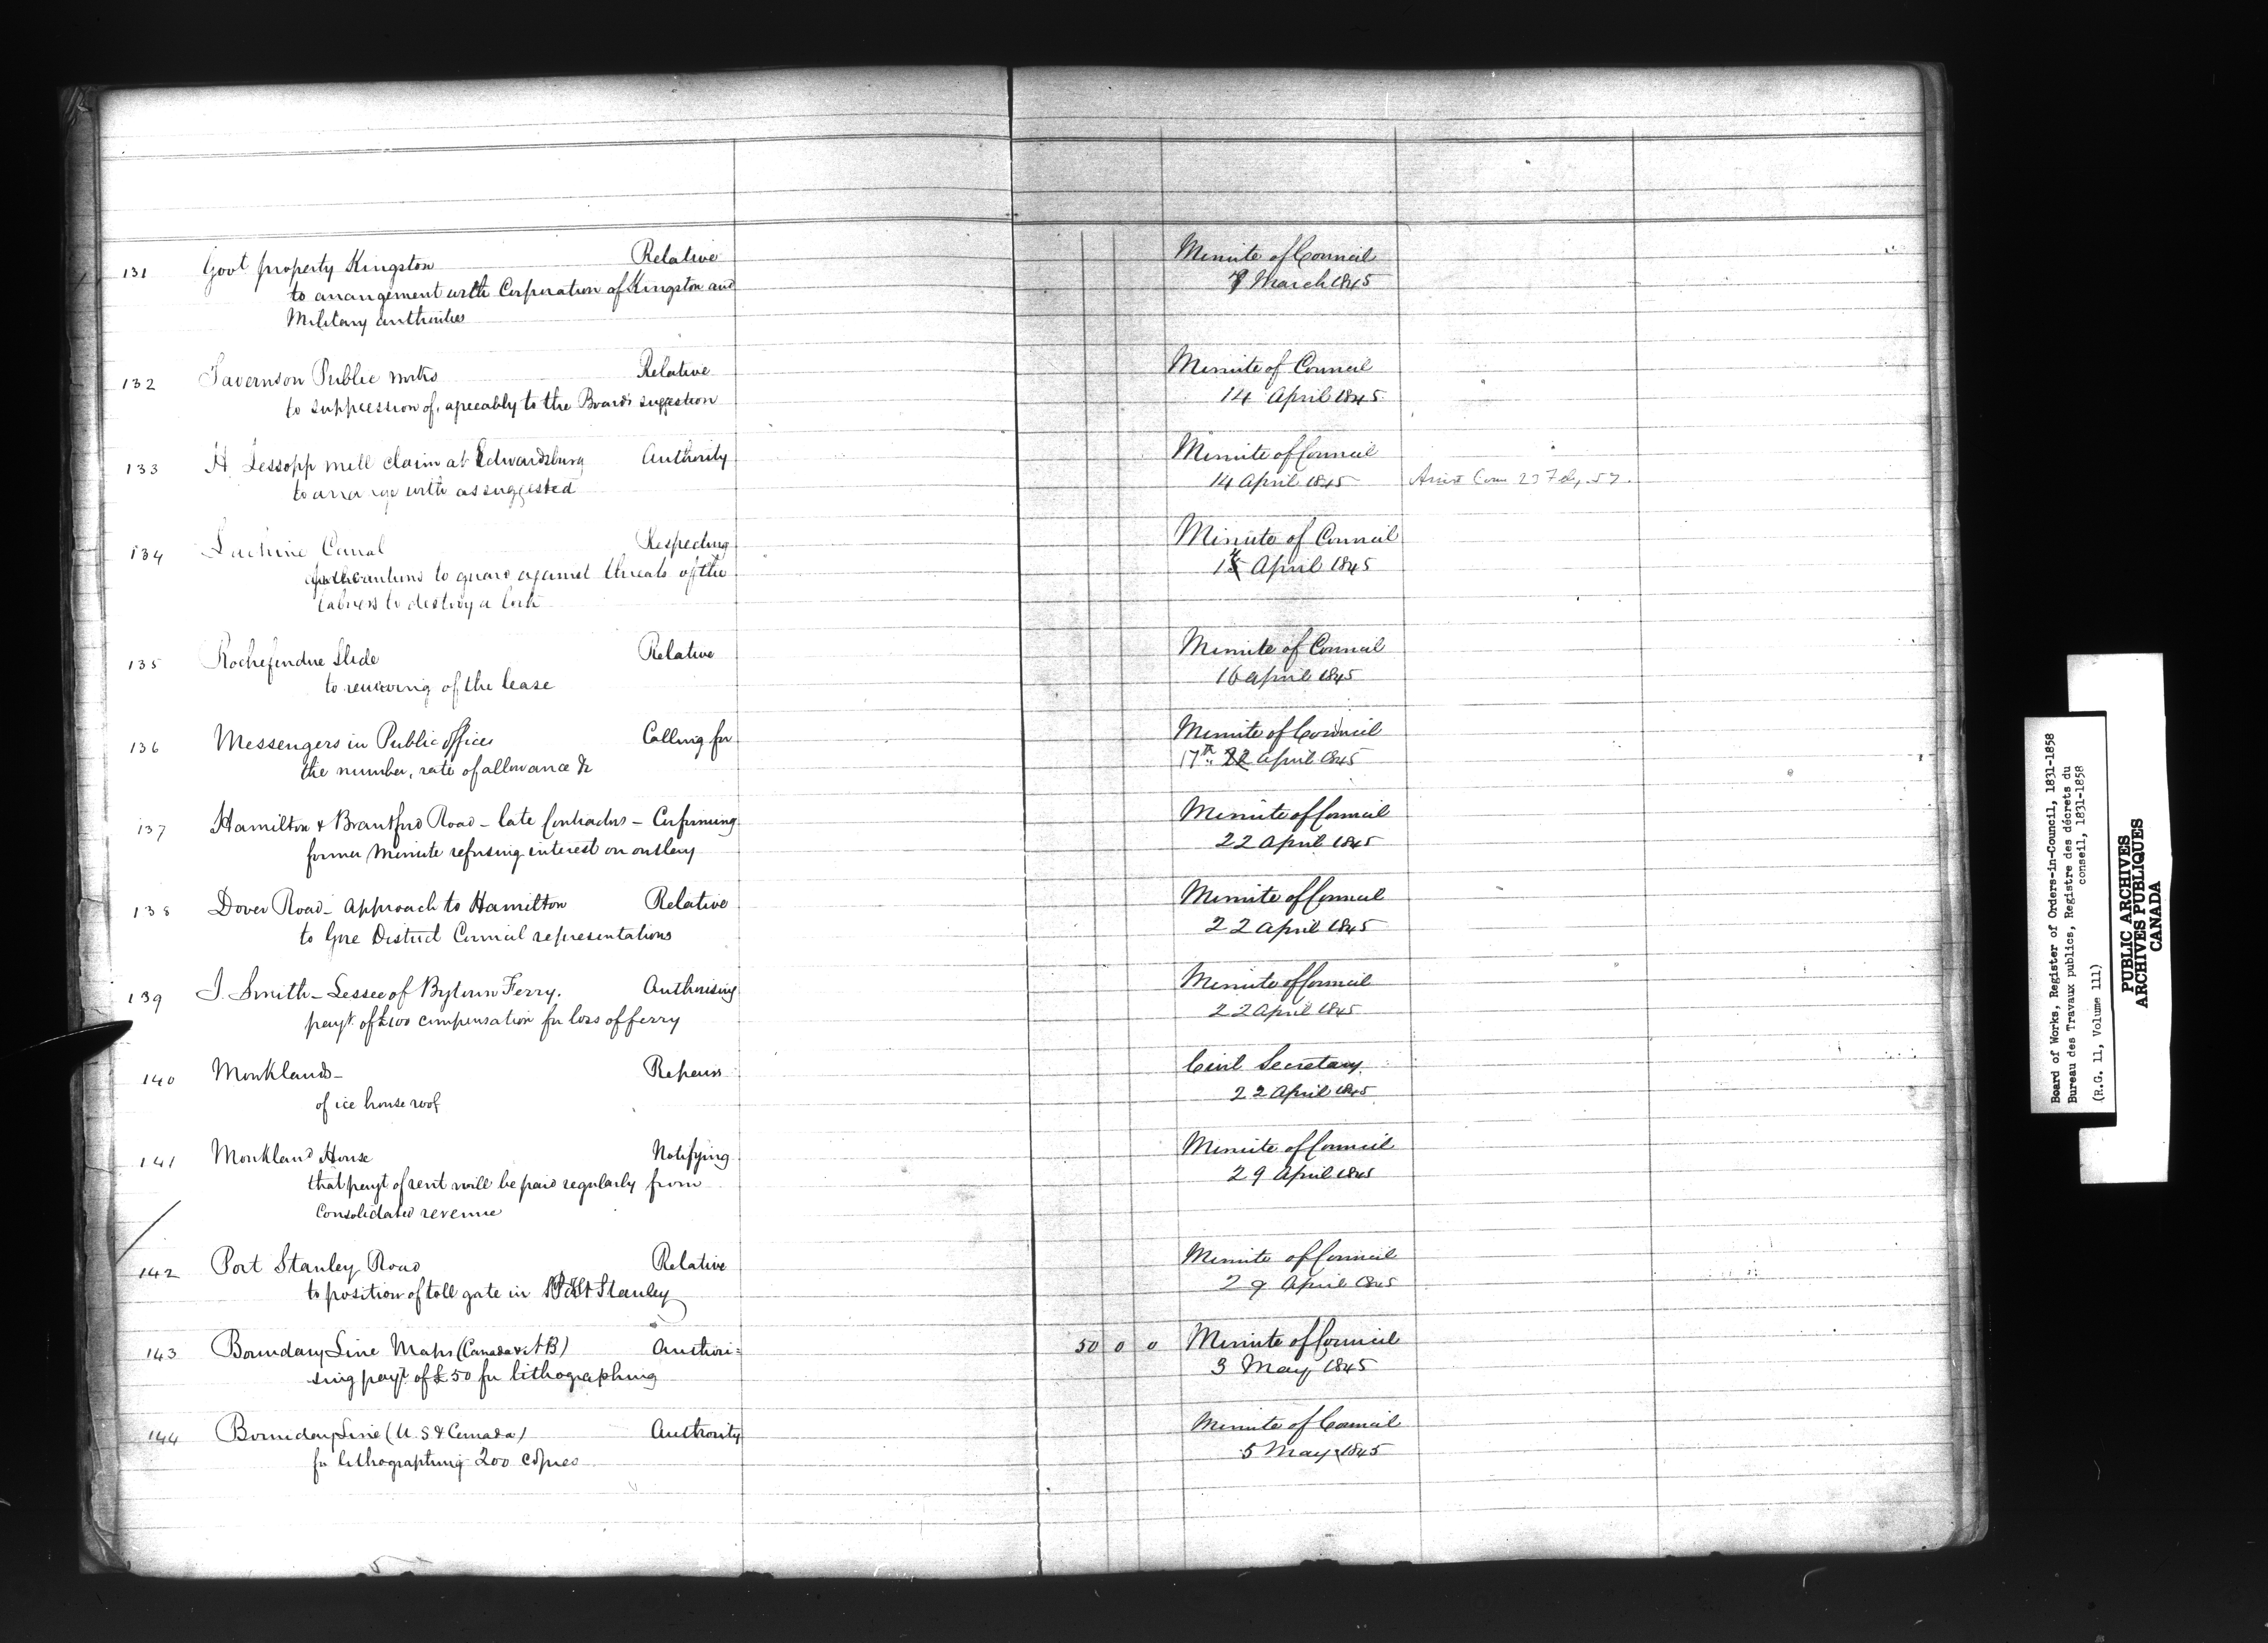 131 Govt property Kingston Relative Minute of Council
to arrangement with Corporation of Kingston and 7 March 1845
Military authorities
132 Taverns on Public works Relative Minute of Council
to suppression of, agreeably to the Boards suggestion 14 April 1845
133 H Lessopp mill claim at Edwardsburg Authority Minute of Council
to arrange with as suggested 14 April 1845 23 Feby. 57.
134 Lachine Canal Respecting Minute of Council
precautions to guard against threats of the April 1845
labrers to destroy a lock
135 Slide Relative Minute of Council
to renewing of the lease 16 April 1845
136 Messengers in Public offices Calling for Minute of Council
the number, rate of allowance &c 17th 22 April 1845
137 Hamilton & Brantford Road - late Contractors - Confirming Minute of Council
former Minute refusing interest on outlay 22 April 1845
138 Dover Road - Approach to Hamilton Relative Minute of Council
to Gore District Council representations 22 April 1845
139 J. Smith - Lessee of Bytown Ferry. Authorising Minute of Council
payt. of £100 compensation for loss of ferry 22 April 1845
140 Monklands - Repairs Civil Secretary
of ice house roof 22 April 1845
141 Monkland House Notifying Minute of Council
that payt of rent will be paid regularly from 29 April 1845
Consolidated revenue
142 Port Stanley Road Relative Minute of Council
to position of toll gate in Port Stanley 29 April 1845
143 Boundary Line Maps (Canada & N B) Authori= 50 0 0 Minute of Council
sing payt of £50 for lithographing 3 May 1845
144 Boundary Line (U. S & Canada) Authority Minute of Council
for lithographing 200 copies 5 May 1845
Board of Works, Register of Orders-in-Council, 1831-1858
Bureau des Travaux publics, Registre des décrets du
conseil, 1831-1858
(R.G. 11, Volume 111)
PUBLIC ARCHIVES
ARCHIVES PUBLIQUES
CANADA